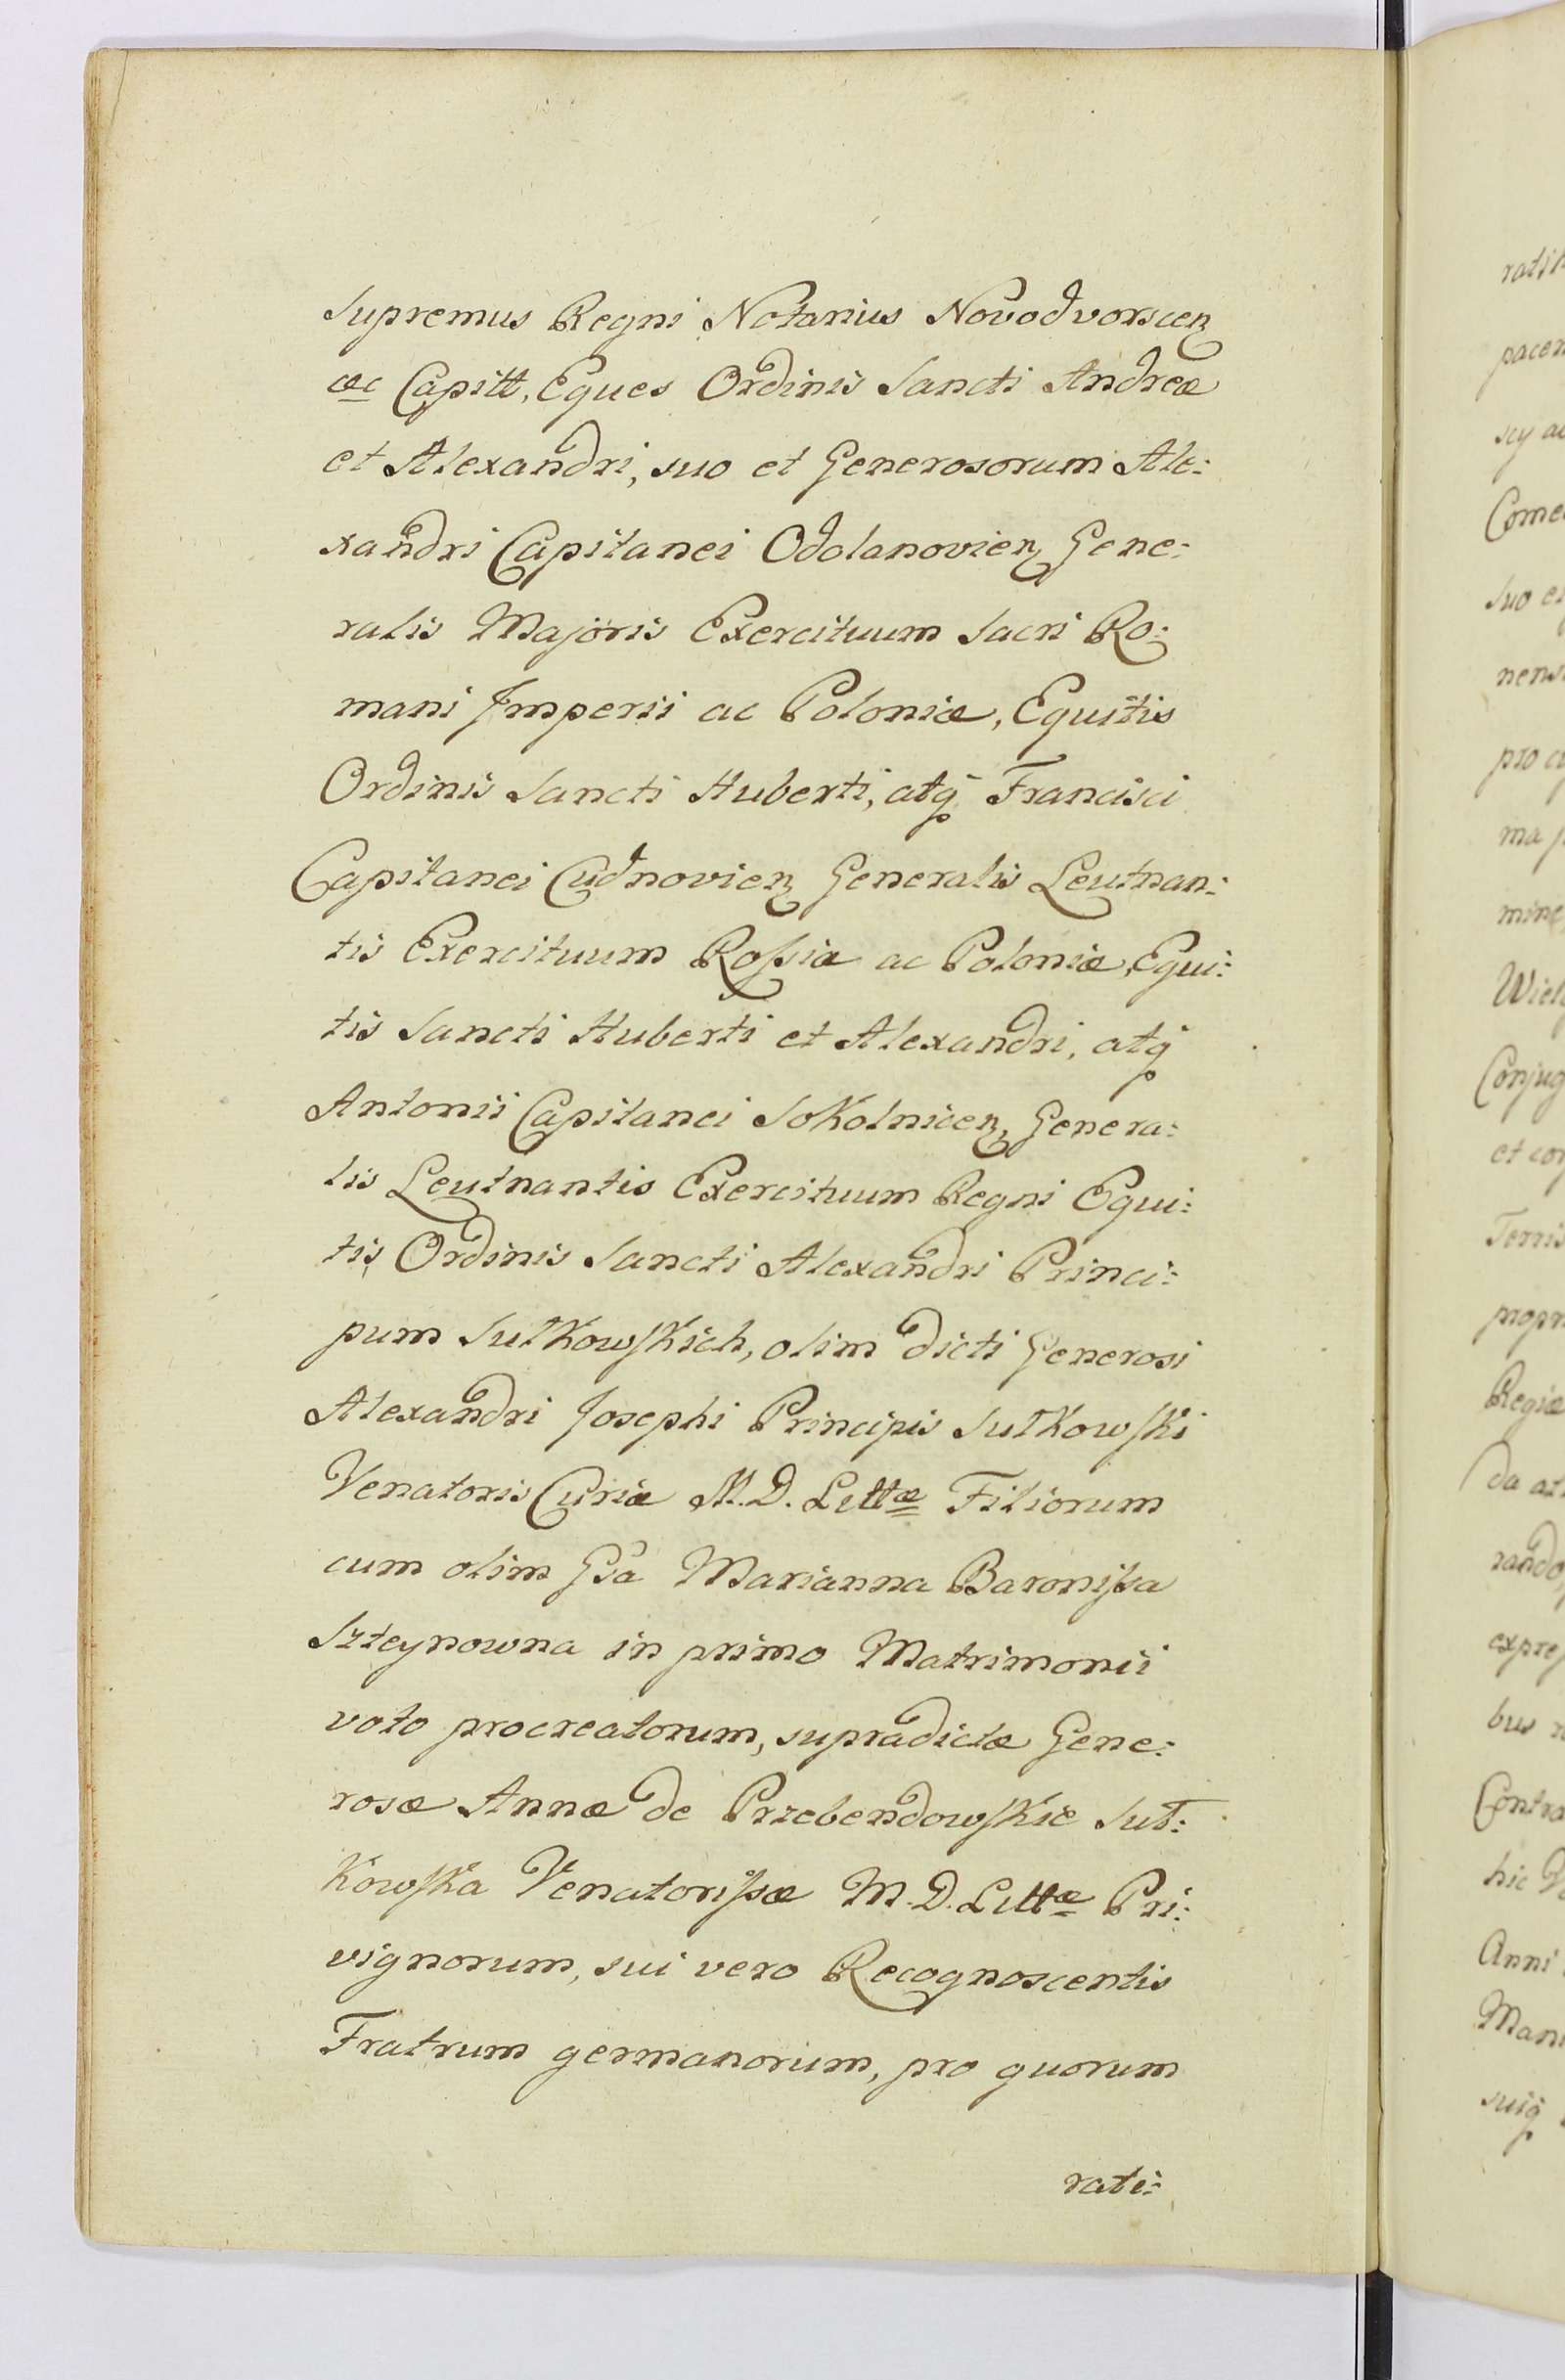 Supremus Regni Notarius Novodvorscen
ac Capitt, Eques Ordinis Sancti Andreæ
et Alexandri, suo et Generosorum Ale:
xandri Capitanei Odolanovien Gene:
ralis Majoris Exercituum Sacri Ro:
mani Imperii ac Poloniæ, Equitis
Ordinis Sancti Huberti, atq Francisci
Capitanei Cudnovien Generalis Leutnan:
tis Exercituum Roſsiæ ac Poloniæ, Equi:
tis Sancti Huberti et Alexandri, atq
Antonii Capitanei Sokolnicen, Genera:
lis Leutnantis Exercituum Regni Equi:
tis Ordinis Sancti Alexandri Princi:
pum Sułkowſkich, olim dicti Generosi
Alexandri Josephi Principis Sułkowſki
Venatoris Curiæ M. D. Littæ Filiorum
cum olim Gsa Marianna Baroniſsa
Szteynowna in primo Matrimonii
voto procreatorum, supradictæ Gene:
rosæ Annæ de Przebendowſkie Suł:
kowſka Venatoriſsæ M. D. Littæ Pri:
vignorum, sui vero Recognoscentis
Fratrum germanorum, pro quorum
rati:
pacen
Come
suo e
nens
pro c
ma
mine
Wiel
Conjug
et con
Terris
propr
Regiæ
da at
rando
expreſ
bus
Contra
hic
Anni
Man
suiq